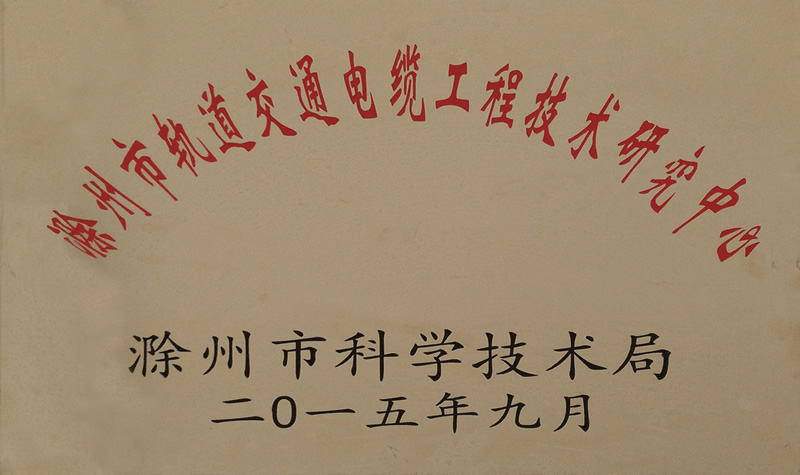 滁州市轨道交通电缆工程技术研究中心
滁州市科学技术局
二0一五年九月